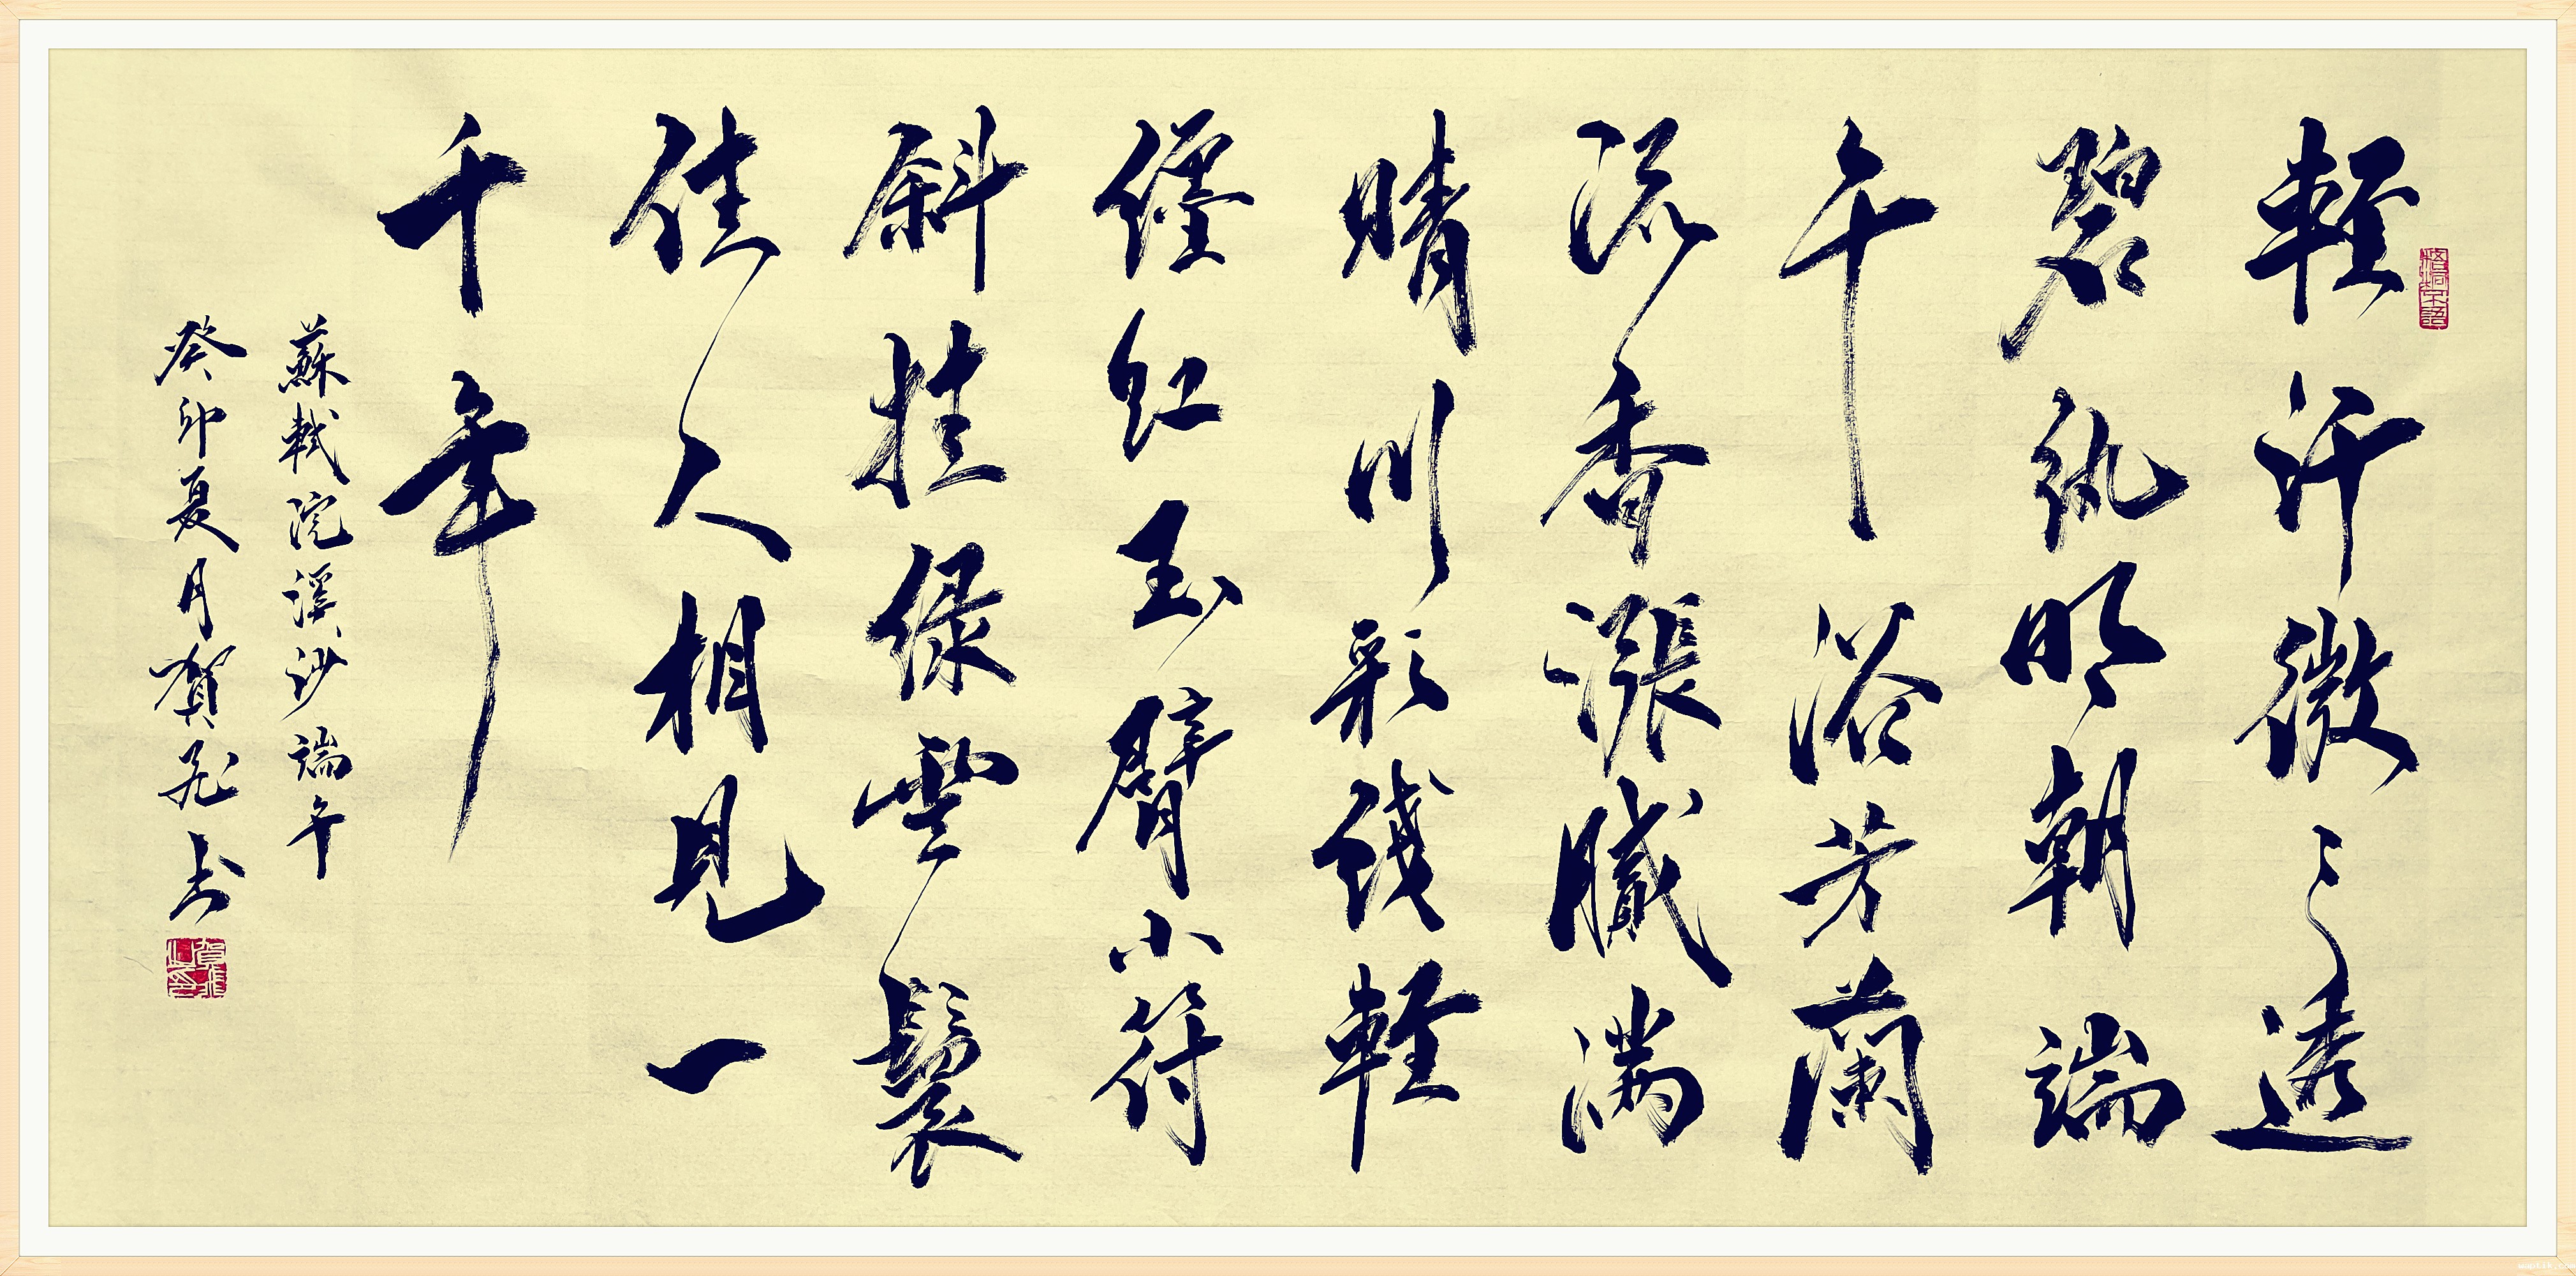 輕汗微〻透
碧紈明朝端
午浴芳蘭
流香漲膩滿
晴川彩綫輕
纏紅玉臂小符
斜挂緑雲鬟
佳人相見一
千年
蘇軾浣溪沙端午
癸卯夏月賀飛书